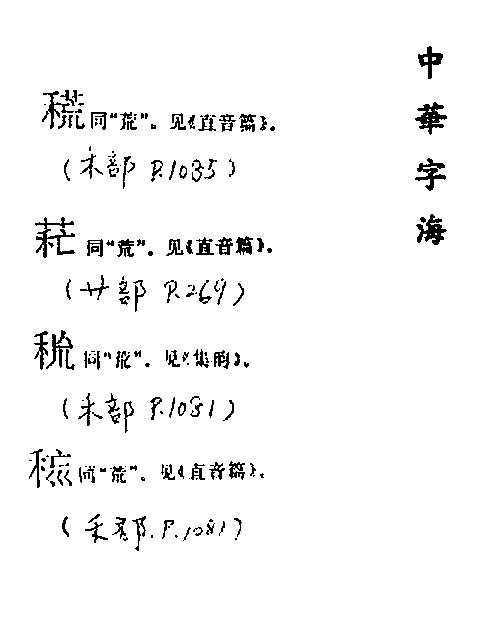 中華字海
同“荒”。见《直音篇》。
(禾部 P.1085)
同“荒”。见《直音篇》。
(艹部 P.269)
同“荒”。见《集韵》。
(禾部 P.1081)
同“荒”。见《直音篇》。
(禾部.P.1081)